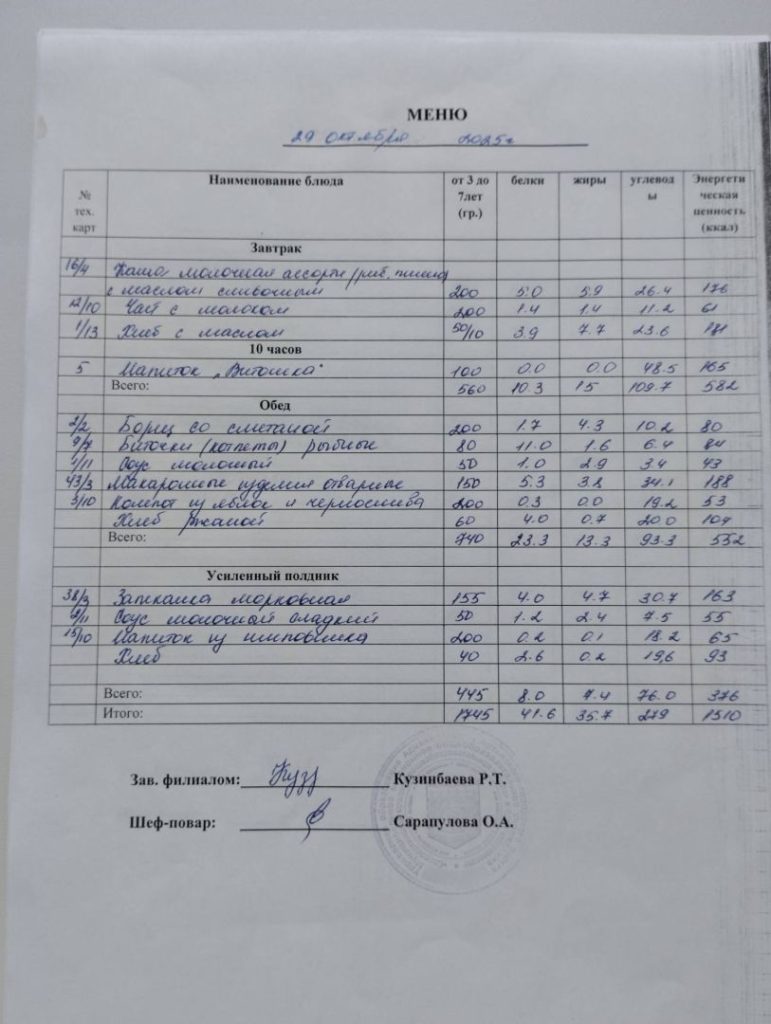 МЕНЮ
29 октября 2025г
№ тех. карт Наименование блюда от 3 до 7лет (гр.) белки жиры углеводы Энергетическая ценность (ккал)
Завтрак
16/4 Каша молочная ассорти /рис, пшено
с маслом сливочным 200 5.0 5.9 26.4 176
12/10 Чай с молоком 200 1.4 1.4 11.2 61
1/13 Хлеб с маслом 50/10 3.9 7.7 23.6 181
10 часов
5 Напиток „Витошка" 100 0.0 0.0 48.5 165
Всего: 560 10.3 15 109.7 582
Обед
2/2 Борщ со сметаной 200 1.7 4.3 10.2 80
9/7 Биточки (котлеты) рыбные 80 11.0 1.6 6.4 84
1/11 Соус молочный 50 1.0 2.9 3.4 43
43/3 Макаронные изделия отварные 150 5.3 3.8 34.1 188
3/10 Компот из яблок и чернослива 200 0.3 0.0 19.2 53
Хлеб ржаной 60 4.0 0.7 20.0 104
Всего: 740 23.3 13.3 93.3 552
Усиленный полдник
38/3 Запеканка морковная 155 4.0 4.7 30.7 163
2/11 Соус молочный сладкий 50 1.2 2.4 7.5 55
15/10 Напиток из шиповника 200 0.2 0.1 18.2 65
Хлеб 40 2.6 0.2 19,6 93
Всего: 445 8.0 7.4 76.0 376
Итого: 1745 41.6 35.7 279 1510
Зав. филиалом: Кузинбаева Р.Т.
Шеф-повар: Сарапулова О.А.